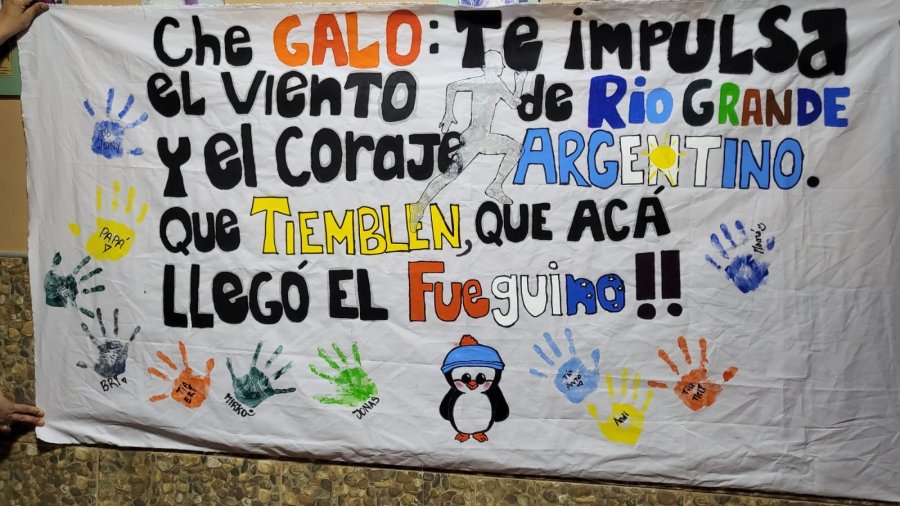 Che GALO: Te impulsa
el viento de Rio GRANDE
Y el coraje ARGENTINO.
Que TIEMBLEN, que ACÁ
llegó el Fueguino!!
PAPÁ
Mamá
BRI
TIA
MIRKO
JONAS
Tío
Andi
Tío